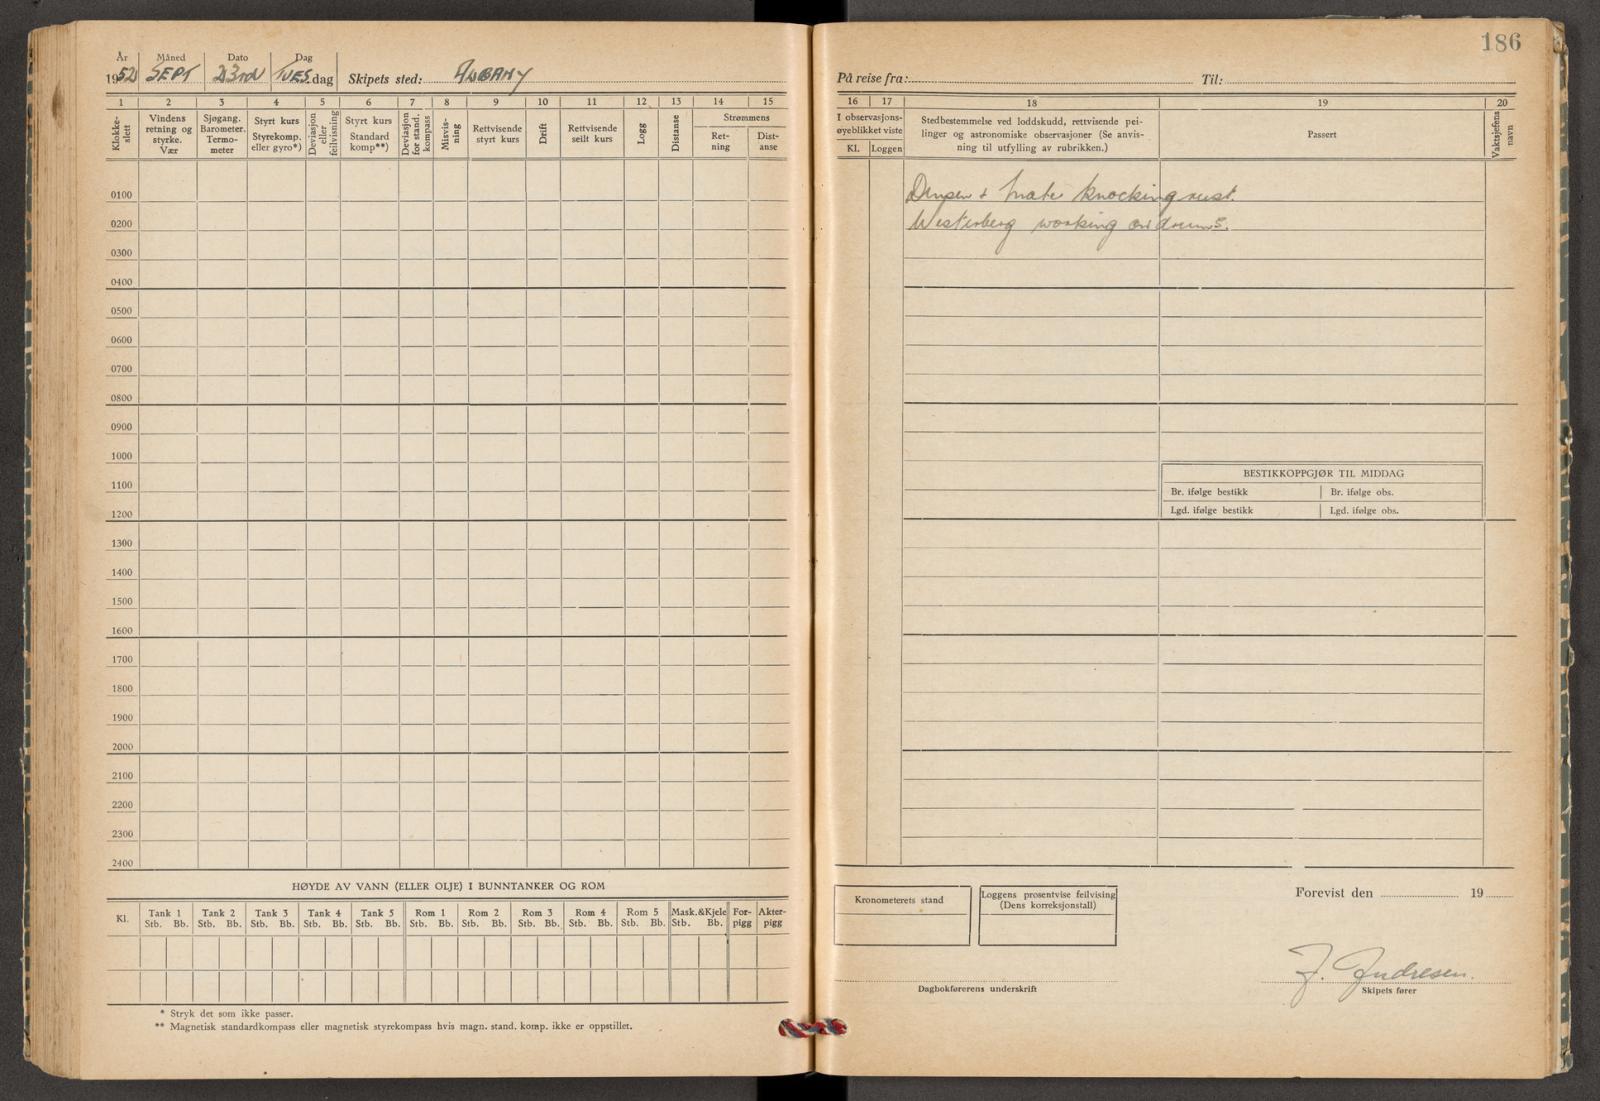 186
År Måned Dato Dag
1952 SEPT 23rd TUES.dag Skipets sted: ALBANY
På reise fra: Til:
1 2 3 4 5 6 7 8 9 10 11 12 13 14 15
Klokke-slett
Vindens retning og styrke. Vær
Sjøgang. Barometer. Termo-meter
Styrt kurs Styrekomp. eller gyro*)
Deviasjon eller feilvisning
Styrt kurs Standard komp**)
Deviasjon for stand. kompass
Misvis-ning
Rettvisende styrt kurs
Drift
Rettvisende seilt kurs
Logg
Distanse
Strømmens
Ret-ning
Dist-anse
16 17 18 19 20
I observasjons-øyeblikket viste
Kl. Loggen
Stedbestemmelse ved loddskudd, rettvisende pei-
linger og astronomiske observasjoner (Se anvis-
ning til utfylling av rubrikken.)
Passert
Vaktsjefens navn
0100
0200
0300
0400
0500
0600
0700
0800
0900
1000
1100
1200
1300
1400
1500
1600
1700
1800
1900
2000
2100
2200
2300
2400
& Mate knocking rust.
Westerberg working on drums.
BESTIKKOPPGJØR TIL MIDDAG
Br. ifølge bestikk Br. ifølge obs.
Lgd. ifølge bestikk Lgd. ifølge obs.
HØYDE AV VANN (ELLER OLJE) I BUNNTANKER OG ROM
Kl. Tank 1 Tank 2 Tank 3 Tank 4 Tank 5 Rom 1 Rom 2 Rom 3 Rom 4 Rom 5 Mask.&Kjele For-pigg Akter-pigg
Stb. Bb. Stb. Bb. Stb. Bb. Stb. Bb. Stb. Bb. Stb. Bb. Stb. Bb. Stb. Bb. Stb. Bb. Stb. Bb. Stb. Bb.
* Stryk det som ikke passer.
** Magnetisk standardkompass eller magnetisk styrekompass hvis magn. stand. komp. ikke er oppstillet.
Kronometerets stand
Loggens prosentvise feilvising
(Dens korreksjonstall)
Forevist den 19
Dagbokførerens underskrift
J. Andresen.
Skipets fører